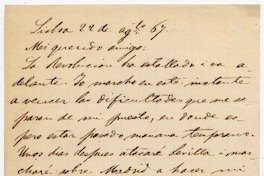 Lisboa 22 de agto 67.
Mi querido amigo:
La Revolucion ha estallado i va a-
delante. Yo marcho en este instante
a vencer las dificultades que me se
paran de mi puesto, en donde es-
pero estar pasado mañana temprano.
Unos dias despues atacaré Sevilla i mar-
charé sobre Madrid a hacer mi